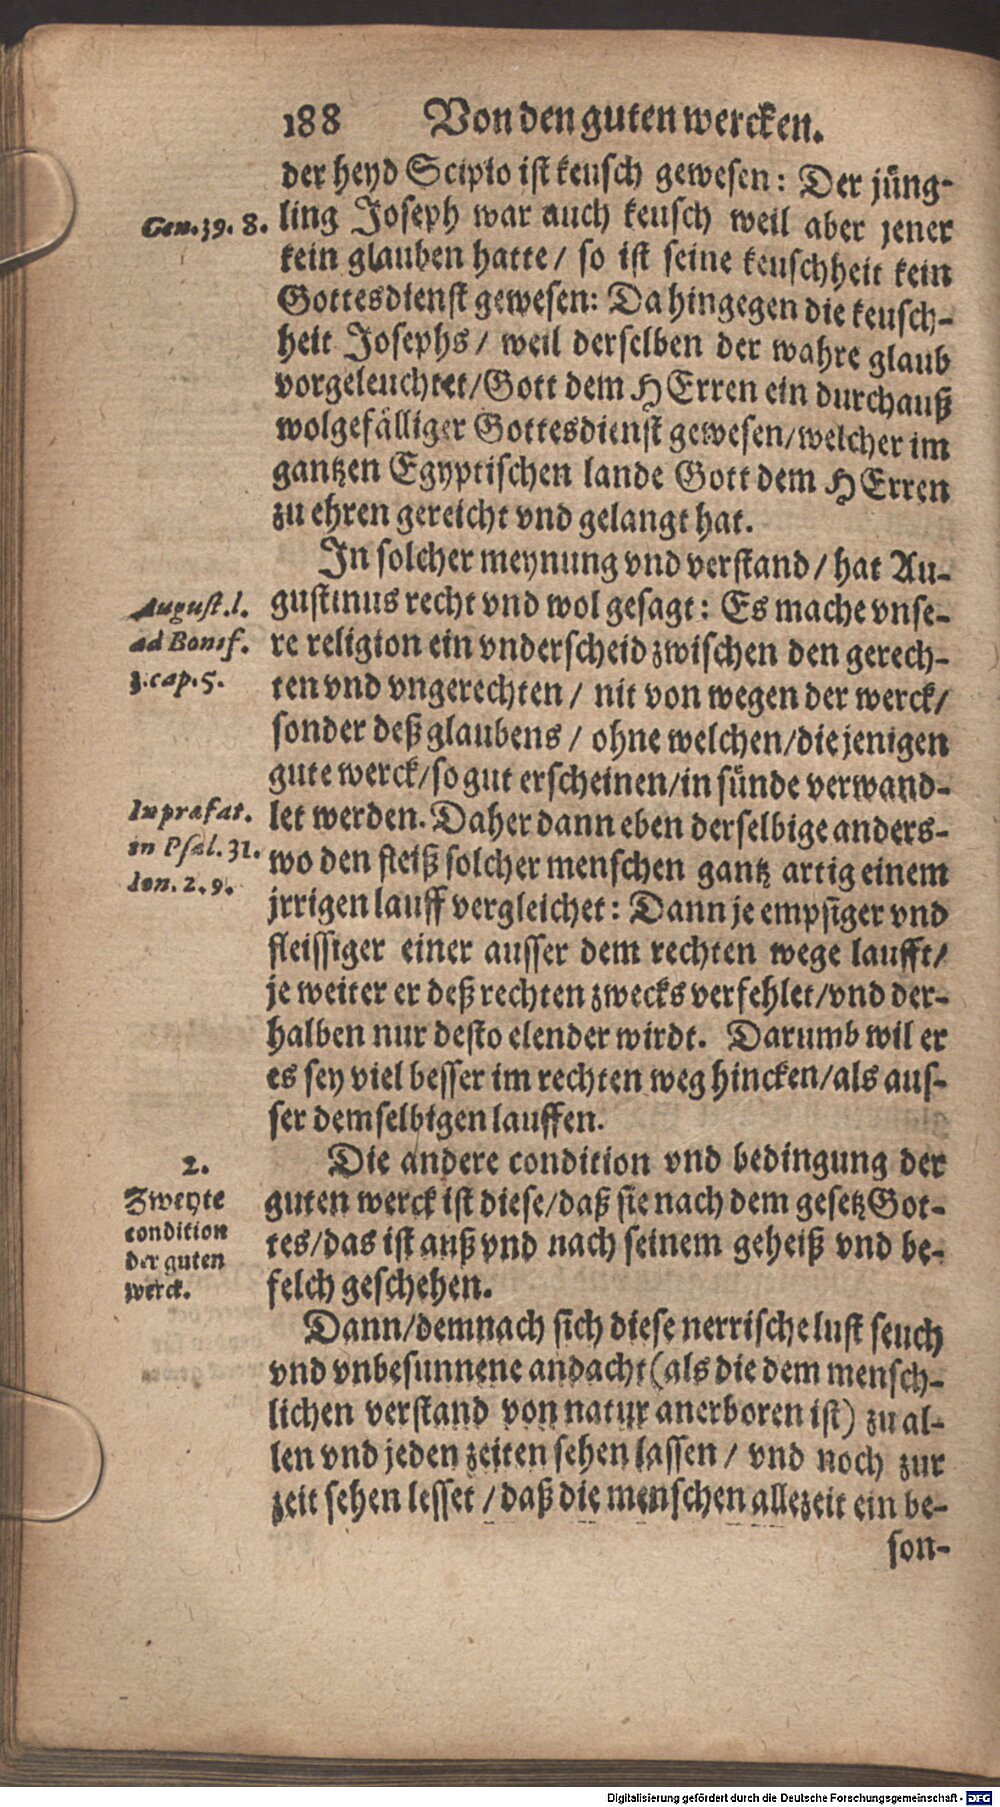 188 Von den guten wercken.
der heyd Scipio ist keusch gewesen: Der jüng-
Gen. 39. 8.
ling Joseph war auch keusch weil aber jener
kein glauben hatte/ so ist seine keuschheit kein
Gottesdienst gewesen: Da hingegen die keusch-
heit Josephs/ weil derselben der wahre glaub
vorgeleuchtet/Gott dem HErren ein durchauß
wolgefälliger Gottesdienst gewesen/welcher im
gantzen Egyptischen lande Gott dem HErren
zu ehren gereicht vnd gelangt hat.
In solcher meynung vnd verstand/ hat Au-
August. l.
ad Bonif.
3. cap. 5.
gustinus recht vnd wol gesagt: Es mache vnse-
re religion ein vnderscheid zwischen den gerech-
ten vnd vngerechten/ nit von wegen der werck/
sonder deß glaubens/ ohne welchen/diejenigen
gute werck/so gut erscheinen/in sünde verwand-
In præfat.
in Psal. 31.
den. 2. 9.
let werden. Daher dann eben derselbige anders-
wo den fleiß solcher menschen gantz artig einem
jrrigen lauff vergleichet: Dann je empsiger vnd
fleissiger einer ausser dem rechten wege laufft/
je weiter er deß rechten zwecks verfehlet/vnd der-
halben nur desto elender wirdt. Darumb wil er
es sey viel besser im rechten weg hincken/als aus-
ser demselbigen lauffen.
2.
Zweyte
condition
der guten
werck.
Die andere condition vnd bedingung der
guten werck ist diese/daß sie nach dem gesetz Got-
tes/das ist auß vnd nach seinem geheiß vnd be-
felch geschehen.
Dann/demnach sich diese nerrische lust seuch
vnd vnbesunnene andacht (als die dem mensch-
lichen verstand von natur anerboren ist) zu al-
len vnd jeden zeiten sehen lassen/ vnd noch zur
zeit sehen lesset/daß die menschen allezeit ein be-
son-
Digitalisierung gefördert durch die Deutsche Forschungsgemeinschaft - DFG